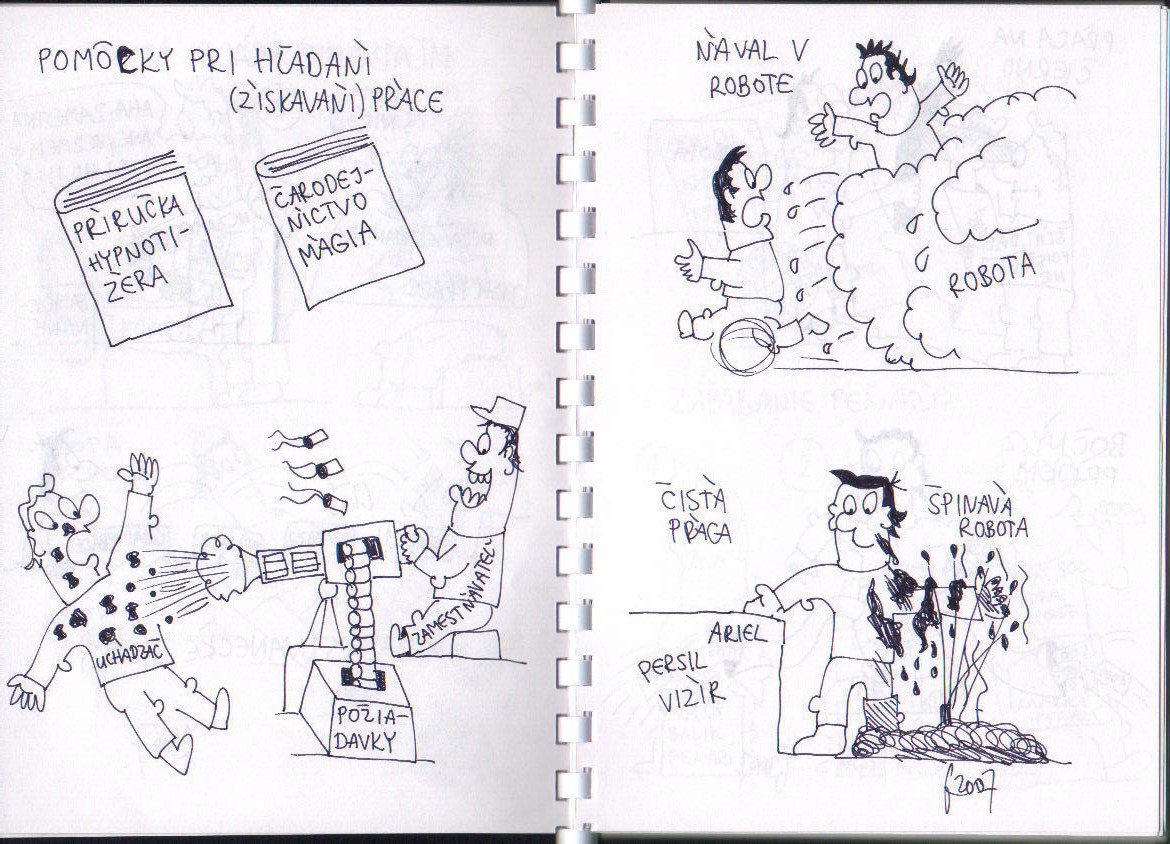 POMÔCKY PRI HĽADANÍ
(ZÍSKAVANÍ) PRÁCE
PRÍRUČKA
HYPNOTI-
ZÉRA
ČARODEJ-
NICTVO
MÁGIA
UCHÁDZAČ
ZAMESTNÁVATEĽ
POŽIA-
DAVKY
NÁVAL V
ROBOTE
ROBOTA
ČISTÁ
PRÁCA
ŠPINAVÁ
ROBOTA
ARIEL
PERSIL
VIZÍR
2007